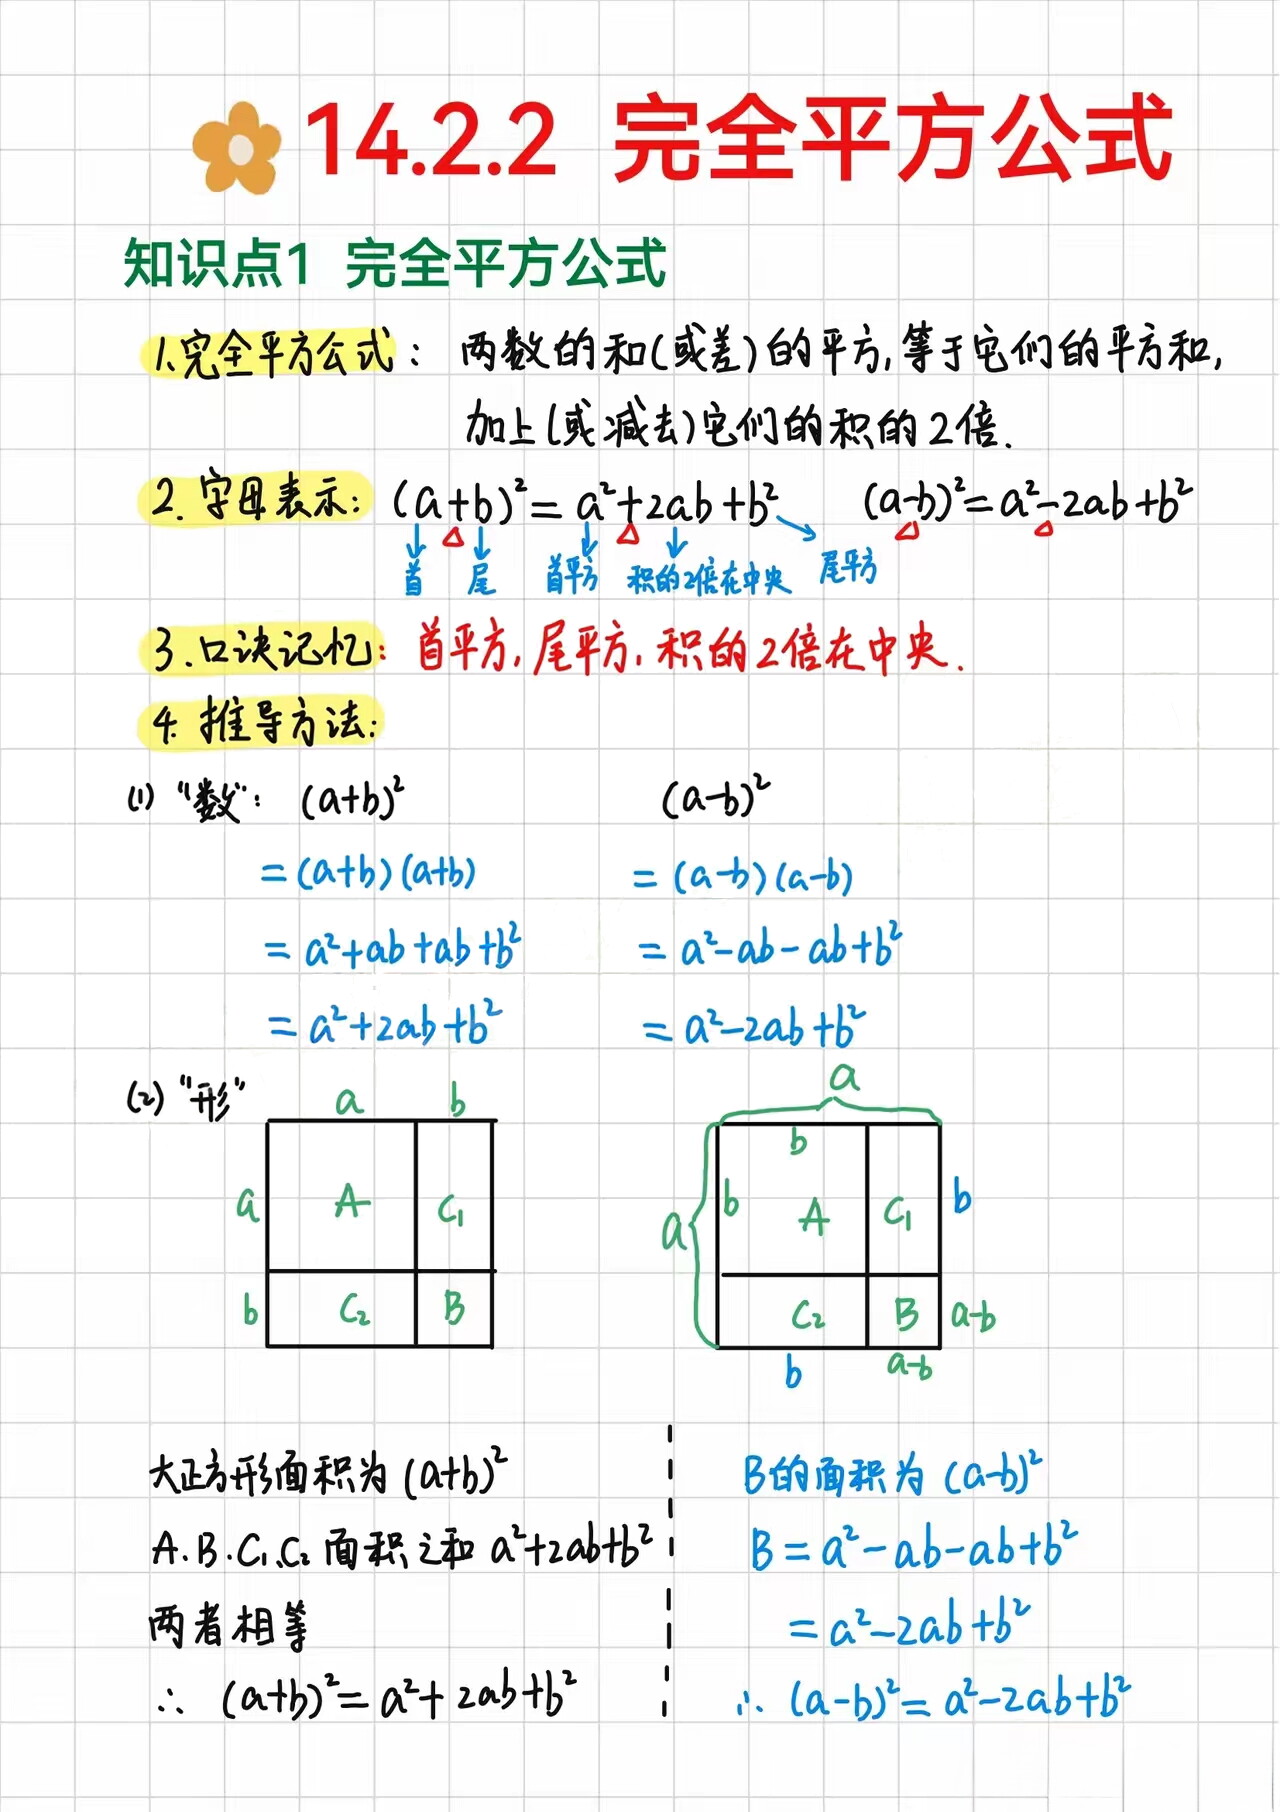 14.2.2 完全平方公式
知识点1 完全平方公式
1.完全平方公式: 两数的和(或差)的平方,等于它们的平方和,
加上(或减去)它们的积的2倍.
2.字母表示: (a+b)²=a²+2ab+b² (a-b)²=a²-2ab+b²
△ △ △ △
首 尾 首平方 积的2倍在中央 尾平方
3.口诀记忆: 首平方,尾平方,积的2倍在中央.
4.推导方法:
(1)“数”: (a+b)² (a-b)²
=(a+b)(a+b) =(a-b)(a-b)
=a²+ab+ab+b² =a²-ab-ab+b²
=a²+2ab+b² =a²-2ab+b²
(2)“形”
a b
a A C₁
b C₂ B
a
b
a b A C₁ b
C₂ B a-b
b a-b
大正方形面积为(a+b)²
A.B.C₁.C₂面积之和a²+2ab+b²
两者相等
∴ (a+b)²=a²+2ab+b²
B的面积为(a-b)²
B=a²-ab-ab+b²
=a²-2ab+b²
∴ (a-b)²=a²-2ab+b²